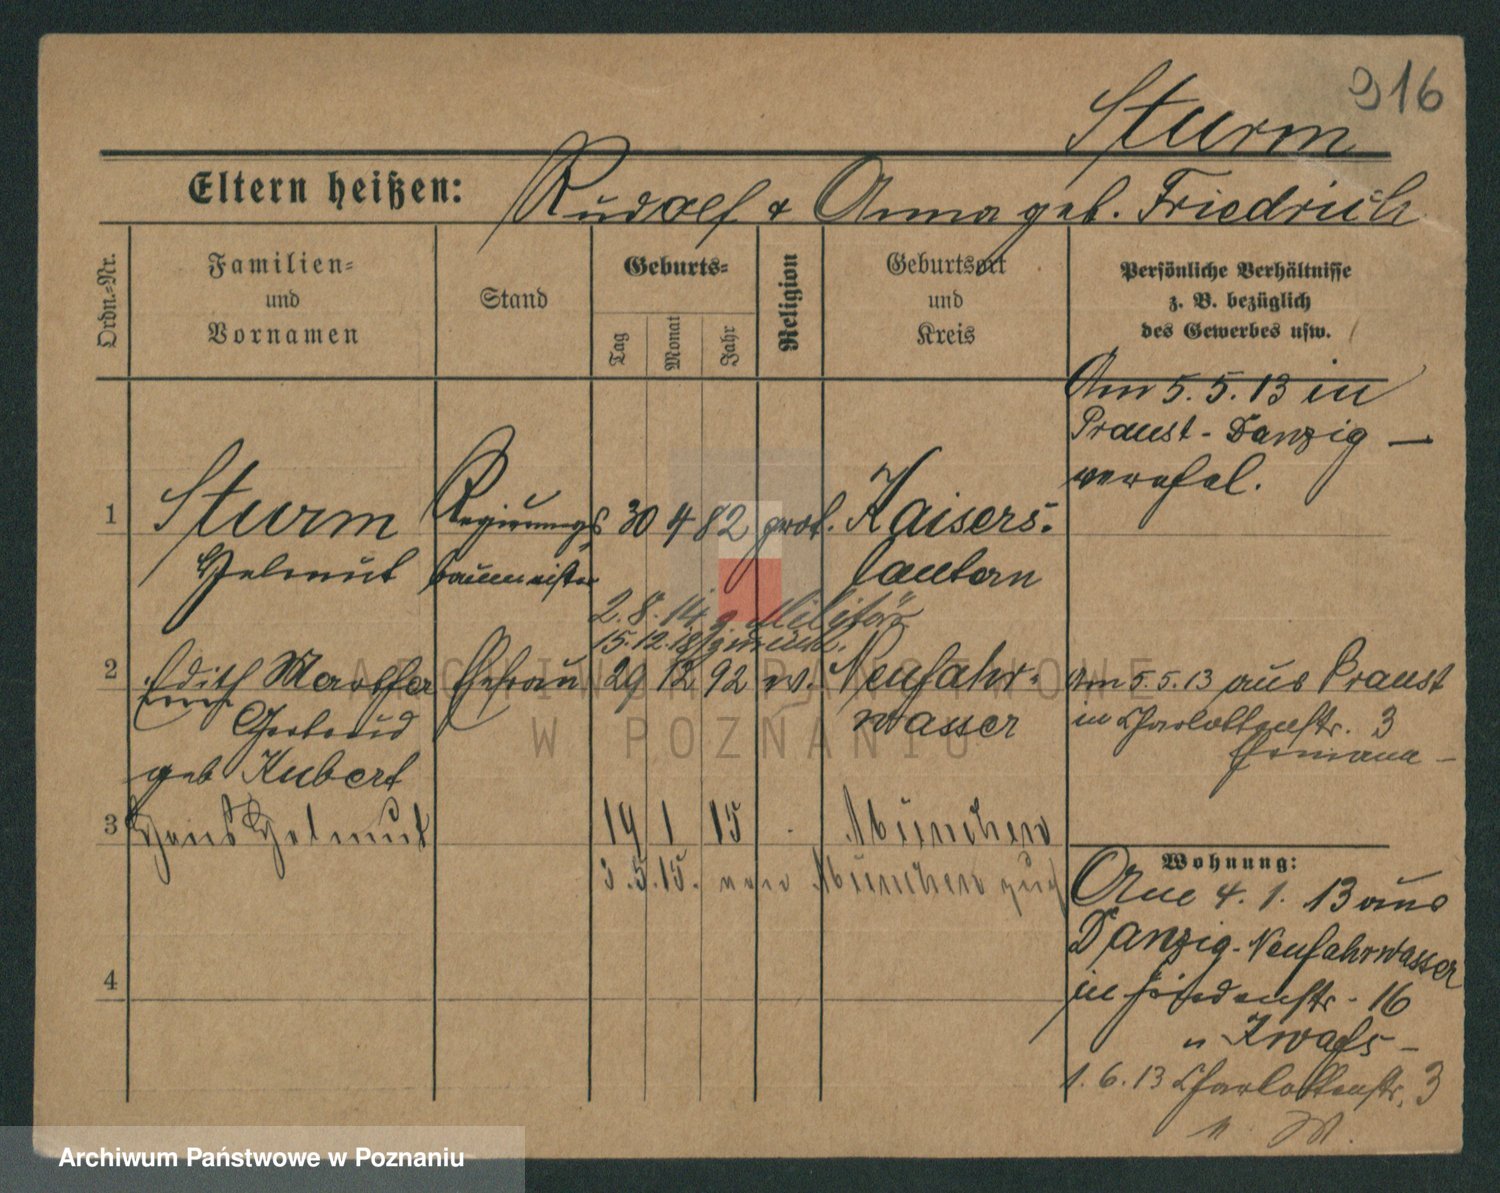 916
Sturm
Eltern heißen: Rudolf + Anna geb. Friedrich
Ordn.-Nr.
Familien-
und
Vornamen
Stand
Geburts-
Tag
Monat
Jahr
Religion
Geburtsort
und
Kreis
Persönliche Verhältnisse
z. B. bezüglich
des Gewerbes usw.
Am 5. 5. 13 in
Praust-Danzig
verehel.
1 Sturm Regierungs 30 4 82 prot. Kaisers-
Helmut baumeister lautern
2. 8. 14 z. Militär
15. 12. 18 zurück.
2 Edith Martha Ehefrau 29 12 92 ev. Neufahr-
Gertrud wasser
geb Kubert
Am 5. 5. 13 aus Praust
in Charlottenstr. 3
3 Hans Helmut 19 1 15 München
3. 5. 15. von München
Wohnung:
Am 4. 1. 13 aus
Danzig-Neufahrwasser
in Friedenstr. 16
1. 6. 13 Charlottenstr. 3
4
ARCHIWUM PAŃSTWOWE
W POZNANIU
Archiwum Państwowe w Poznaniu